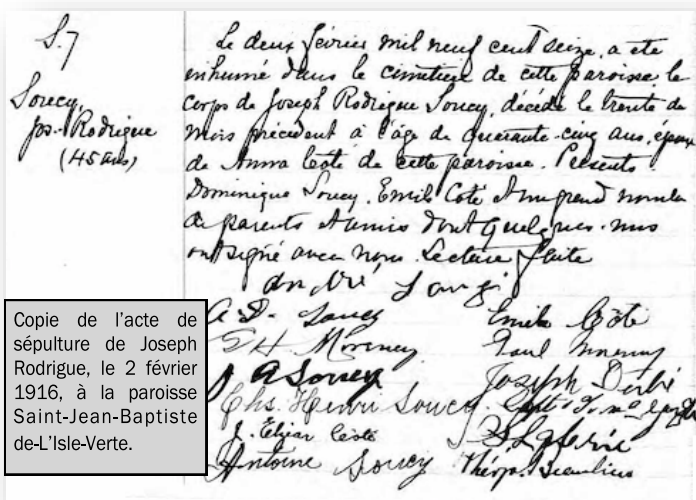 S. 7
Soucy,
Jos. Rodrigue
(45 ans)
Le deux février mil neuf cent seize, a été
inhumé dans le cimetière de cette paroisse le
corps de Joseph Rodrigue Soucy, décédé le trente du
mois précédent à l'âge de quarante cinq ans, époux
de Anna Côté de cette paroisse. Présents
Dominique Soucy, Emile Coté et un grand nombre
de parents et amis dont quelques-uns
ont signé avec nous. Lecture faite
A. D. Soucy Emile Côté
Paul
A Soucy Joseph
Chs. Henri Soucy
J. Elzear Coté
Antoine Soucy Beaulieu
Copie de l'acte de
sépulture de Joseph
Rodrigue, le 2 février
1916, à la paroisse
Saint-Jean-Baptiste
de-L'Isle-Verte.